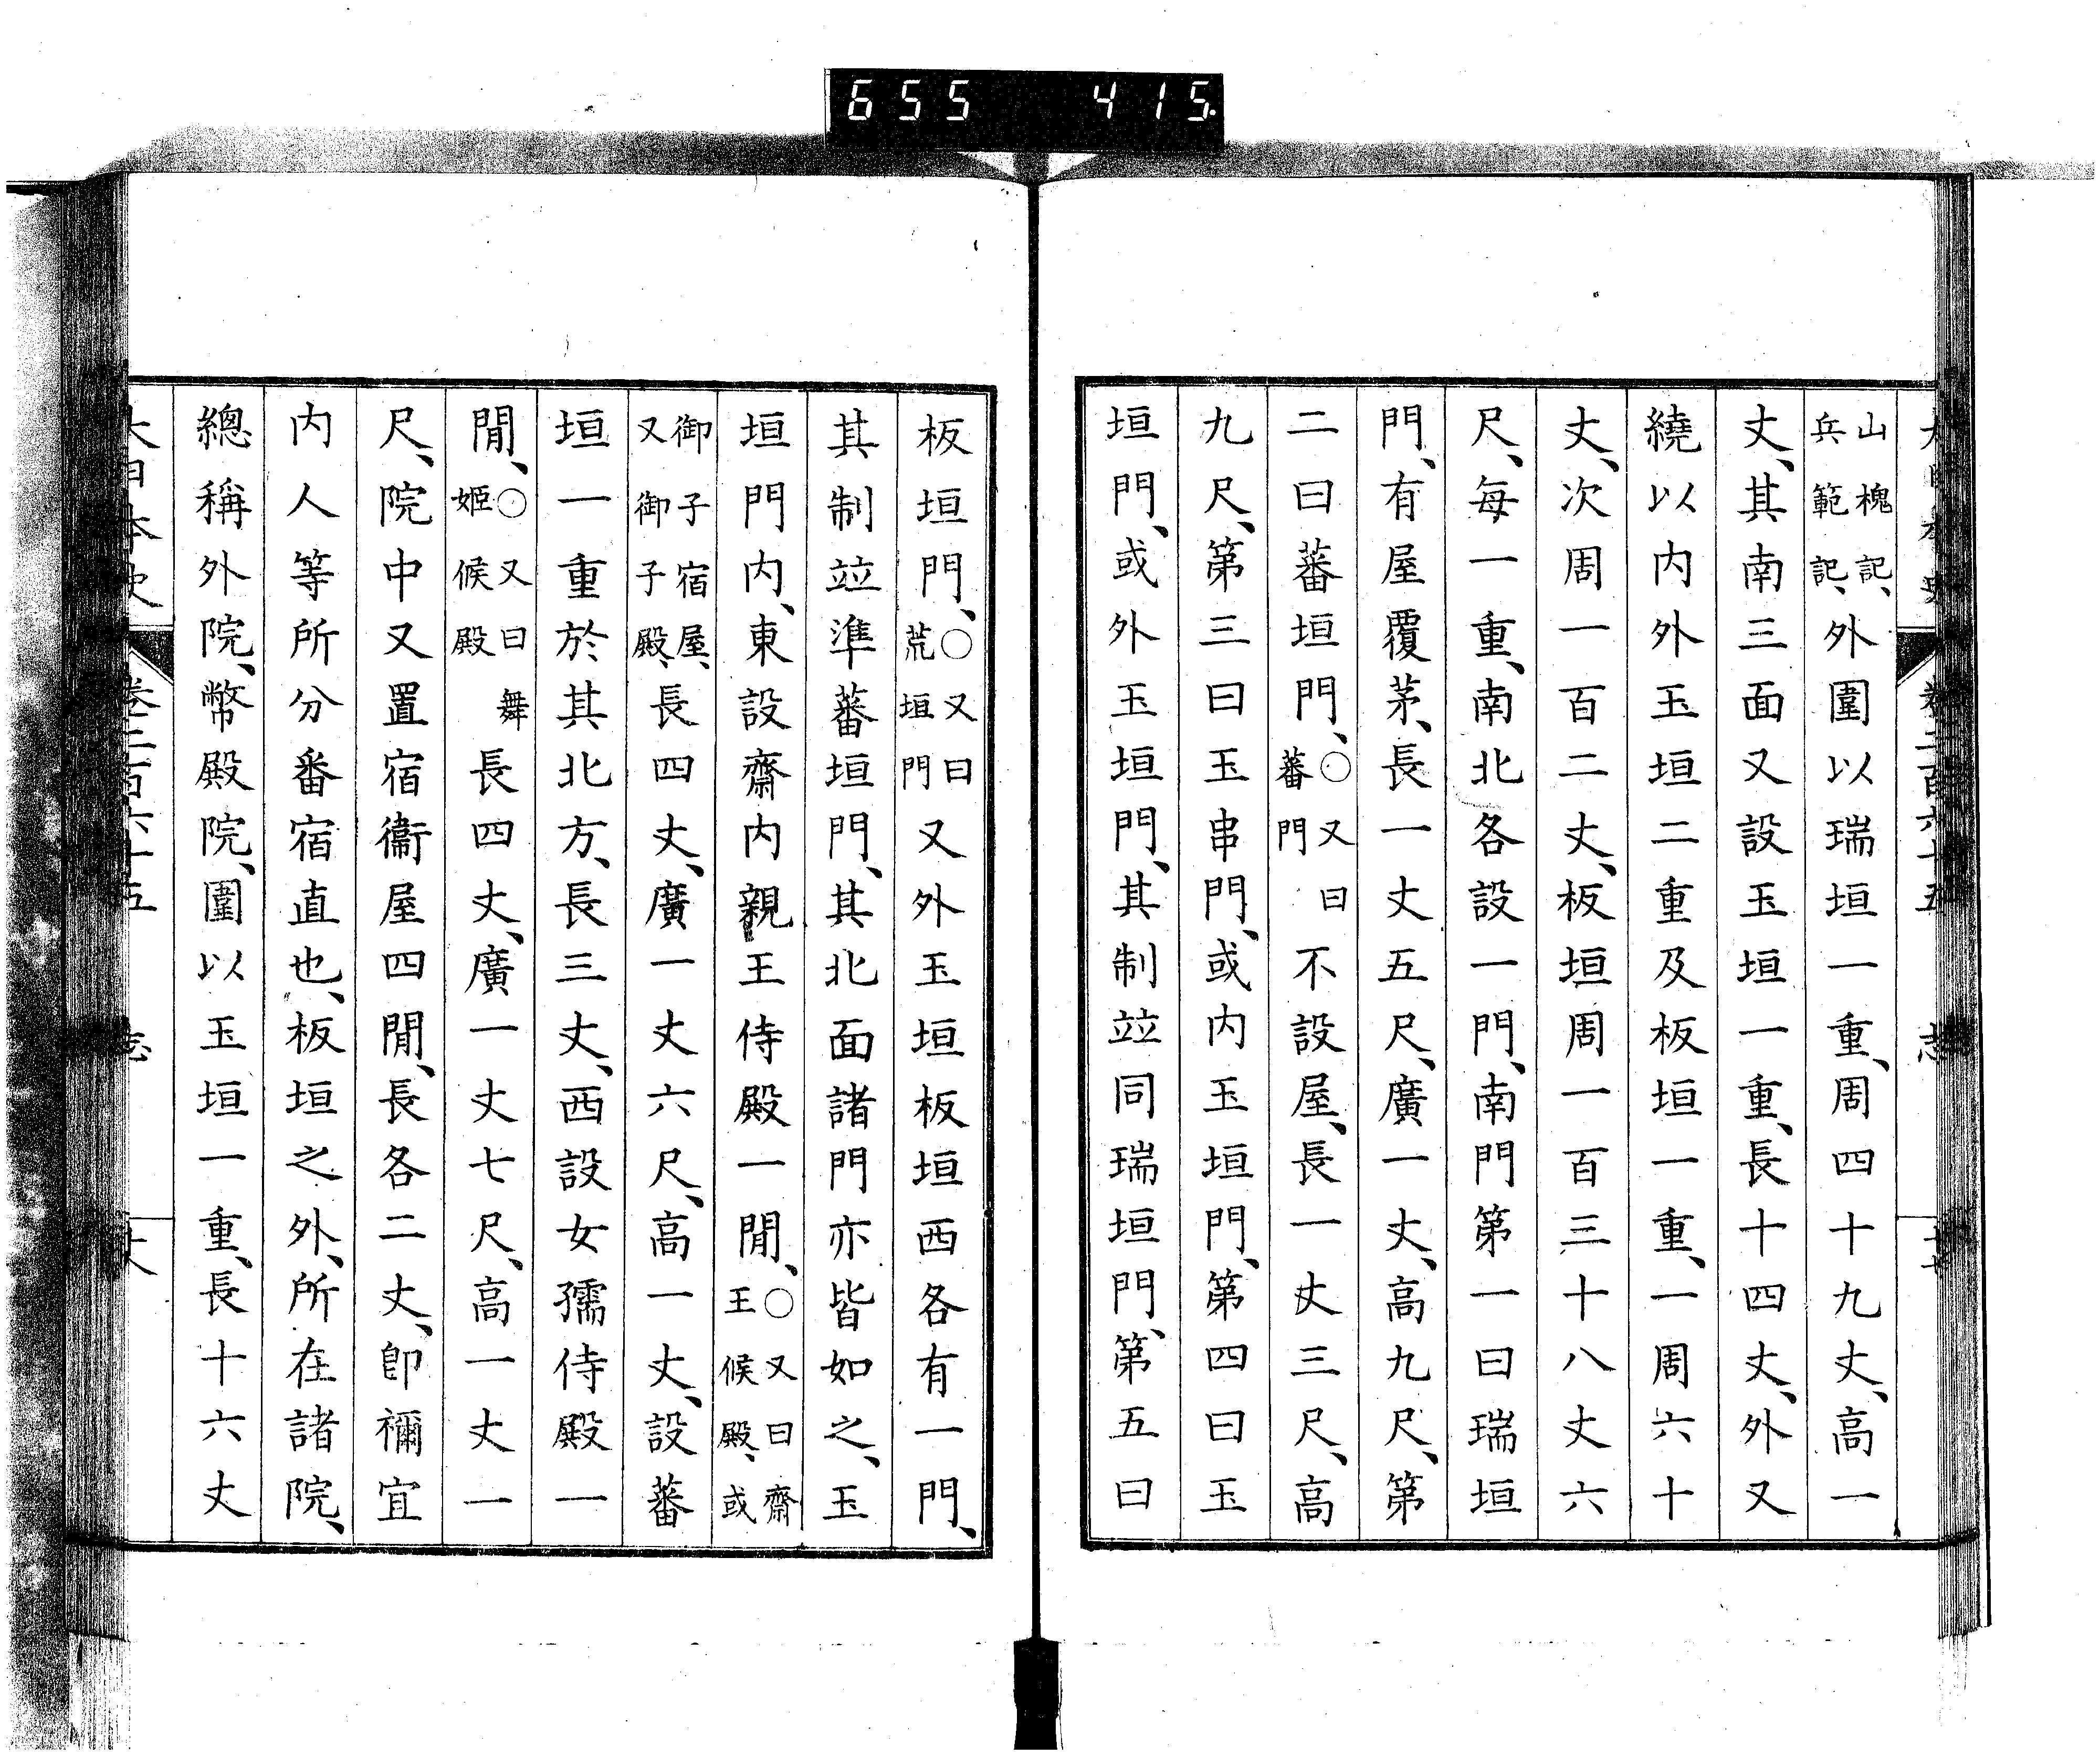 655 415
山槐記、兵範記、外圍以瑞垣一重、周四十九丈、高一
丈、其南三面又設玉垣一重、長十四丈、外又
繞以内外玉垣二重及板垣一重、一周六十
丈、次周一百二丈、板垣周一百三十八丈六
尺、每一重、南北各設一門、南門第一曰瑞垣
門、有屋覆茅、長一丈五尺、廣一丈、高九尺、第
二曰蕃垣門、○又曰蕃門不設屋、長一丈三尺、高
九尺、第三曰玉串門、或内玉垣門、第四曰玉
垣門、或外玉垣門、其制竝同瑞垣門、第五曰
板垣門、○又曰荒垣門又外玉垣板垣西各有一門、
其制竝準蕃垣門、其北面諸門亦皆如之、玉
垣門内、東設齋内親王侍殿一間、○又曰齋王候殿、或
御子宿屋、又御子殿、長四丈、廣一丈六尺、高一丈、設蕃
垣一重於其北方、長三丈、西設女孺侍殿一
間、○又曰舞姬候殿長四丈、廣一丈七尺、高一丈一
尺、院中又置宿衞屋四間、長各二丈、卽禰宜
内人等所分番宿直也、板垣之外、所在諸院、
總稱外院、幣殿院、圍以玉垣一重、長十六丈